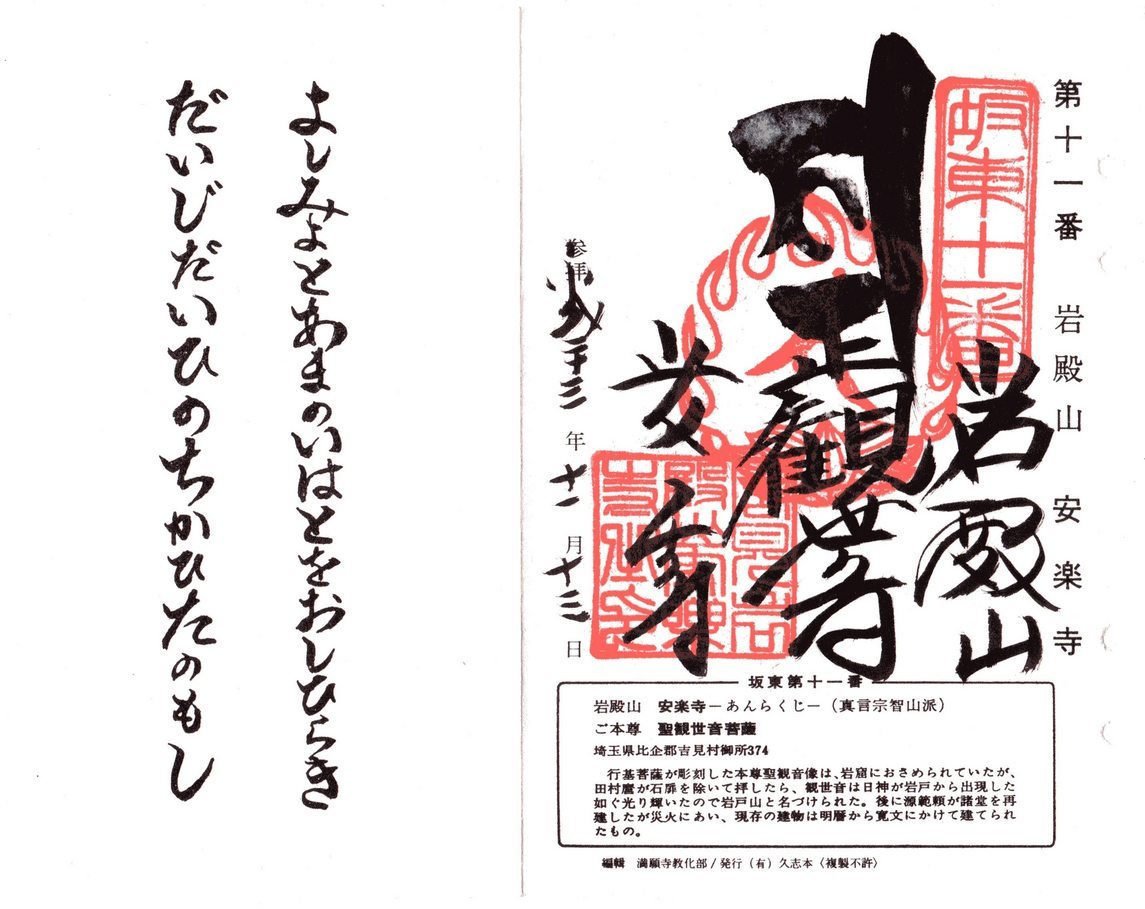 第十一番 岩殿山 安楽寺
坂東十一番
岩殿山
聖觀世音
安楽寺
参拝
平成二十三年十一月十三日
坂東第十一番
岩殿山 安楽寺－あんらくじ－（真言宗智山派）
ご本尊 聖観世音菩薩
埼玉県比企郡吉見村御所374
行基菩薩が彫刻した本尊聖観音像は、岩窟におさめられていたが、
田村麿が石扉を除いて拝したら、観世音は日神が岩戸から出現した
如ぐ光り輝いたので岩戸山と名づけられた。後に源範頼が諸堂を再
建したが災火にあい、現存の建物は明暦から寛文にかけて建てられ
たもの。
編輯 満願寺教化部/発行（有）久志本〈複製不許〉
よしみよとあまのいはとをおしひらき
だいじだいひのちかひたのもし